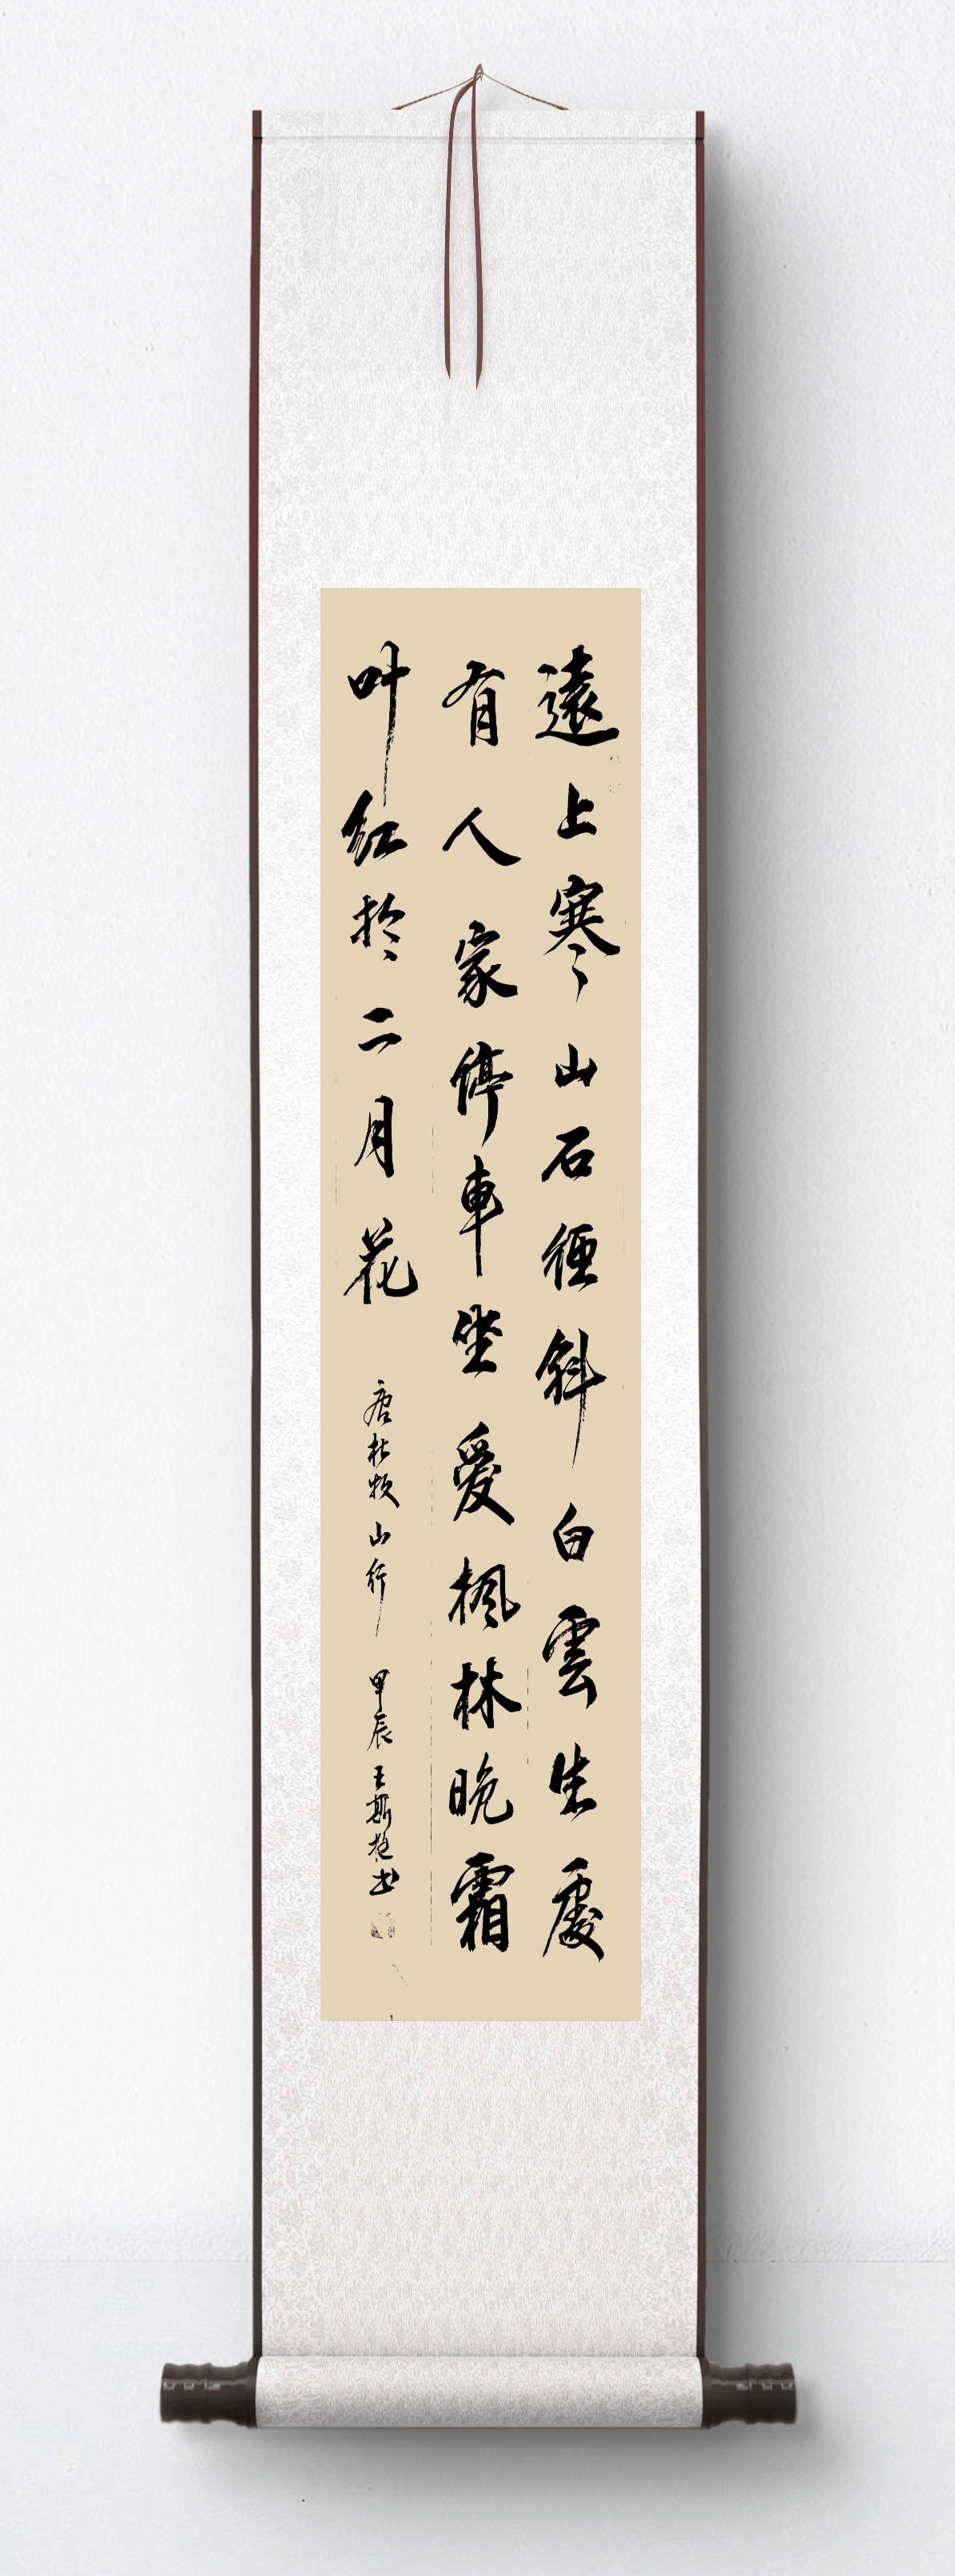 遠上寒山石徑斜白雲生處
有人家停車坐愛楓林晚霜
叶红於二月花
唐杜牧山行 甲辰王斯书